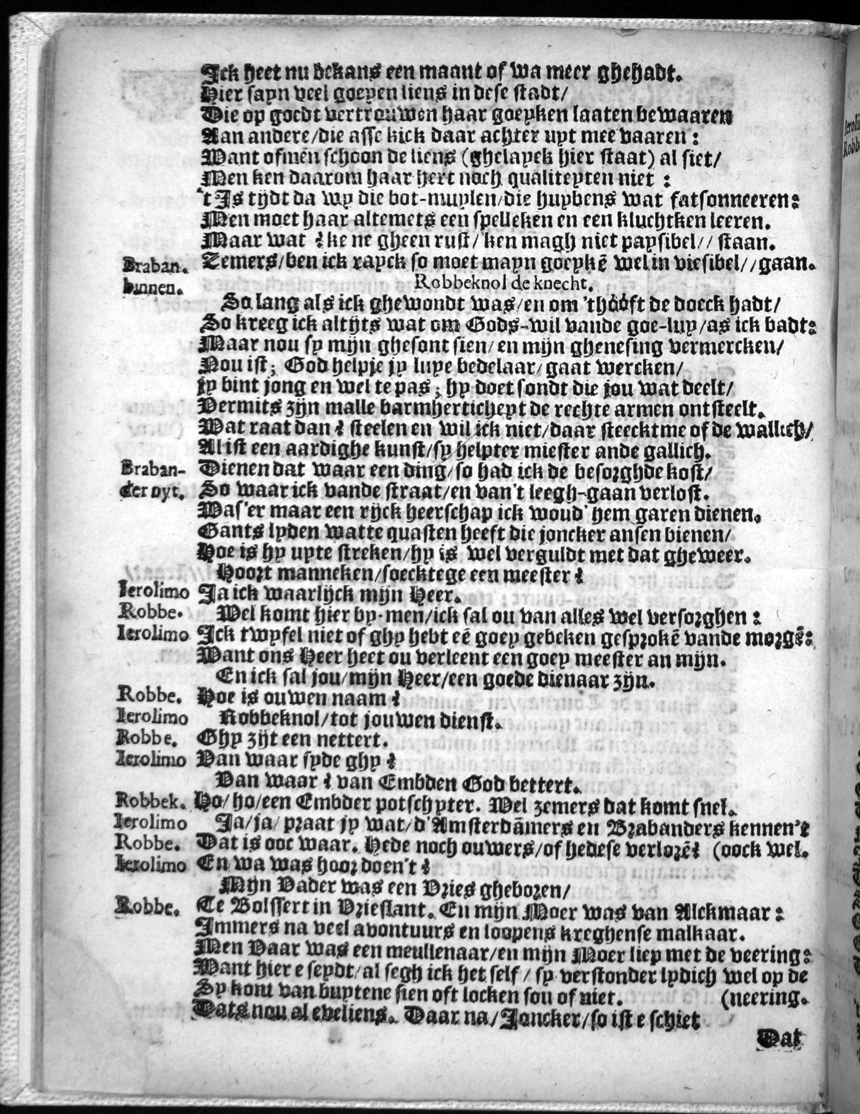 Ick heet nu bekans een maant of wa meer ghehadt.
Hier sayn veel goeyen liens in dese stadt/
Die op goedt vertrouwen haar goeyken laaten bewaaren
Aan andere/die asse kick daar achter uyt mee vaaren:
Want ofmen schoon de liens (ghelayck hier staat) al siet/
Men ken daarom haar hert noch qualiteyten niet:
't Is tydt da wy die bot-muylen/die huybens wat fatsonneeren:
Men moet haar altemets een spelleken en een kluchtken leeren.
Maar wat ? ke ne gheen rust/'ken magh niet paysibel// staan.
Braban. Zemers/ben ick rayck so moet mayn goeykē wel in viesibel//gaan.
binnen. Robbeknol de knecht.
So lang als ick ghewondt was/en om 'thòòft de doeck hadt/
So kreeg ick altyts wat om Gods-wil vande goe-luy/as ick badt:
Maar nou sy mijn ghesont sien/en mijn ghenesing vermercken/
Nou ist; God helpje jy luye bedelaar/gaat wercken/
jy bint jong en wel te pas; hy doet sondt die jou wat deelt/
Vermits zijn malle barmhertichept de rechte armen ontsteelt.
Wat raat dan ? steelen en wil ick niet/daar steecktme of de wallich/
Al ist een aardighe kunst/sy helpter miester ande gallich.
Braban- Dienen dat waar een ding/so had ick de besorghde kost/
der uyt. So waar ick vande straat/en van't leegh-gaan verlost.
Was'er maar een rijck heerschap ick woud' hem garen dienen.
Gants lyden watte quasten heeft die joncker ansen bienen/
Hoe is hy upte streken/hy is wel verguldt met dat gheweer.
Hoort manneken/soecktege een meester ?
Ierolimo Ja ick waarlijck mijn Heer.
Robbe. Wel komt hier by-men/ick sal ou van alles wel versorghen:
Ierolimo Ick twyfel niet of ghy hebt eē goey gebeken gesprokē vande morgē:
Want ons Heer heet ou verleent een goey meester an mijn.
En ick sal jou/mijn Heer/een goede dienaar zijn.
Robbe. Hoe is ouwen naam ?
Ierolimo Robbeknol/tot jouwen dienst.
Robbe. Ghy zijt een nettert.
Ierolimo Van waar syde ghy ?
Van waar ? van Embden God bettert.
Robbek. Ho/ho/een Embder potschyter. Wel zemers dat komt snel.
Ierolimo Ja/ja/praat jy wat/d'Amsterdāmers en Brabanders kennen't
Robbe. Dat is ooc waar. Hede noch ouwers/of hedese verlorē? (oock wel.
Ierolimo En wa was hoor doen't ?
Mijn Vader was een Vries gheboren/
Robbe. Te Bolssert in Vrieslant. En mijn Moer was van Alckmaar:
Immers na veel avontuurs en loopens kreghense malkaar.
Men Vaar was een meullenaar/en mijn Moer liep met de veering:
Want hier e seydt/al segh ick het self/sy verstonder lydich wel op de
Sy kont van buytene sien oft locken sou of niet. (neering.
Dats nou al eveliens. Daar na/Joncker/so ist e schiet
Dat